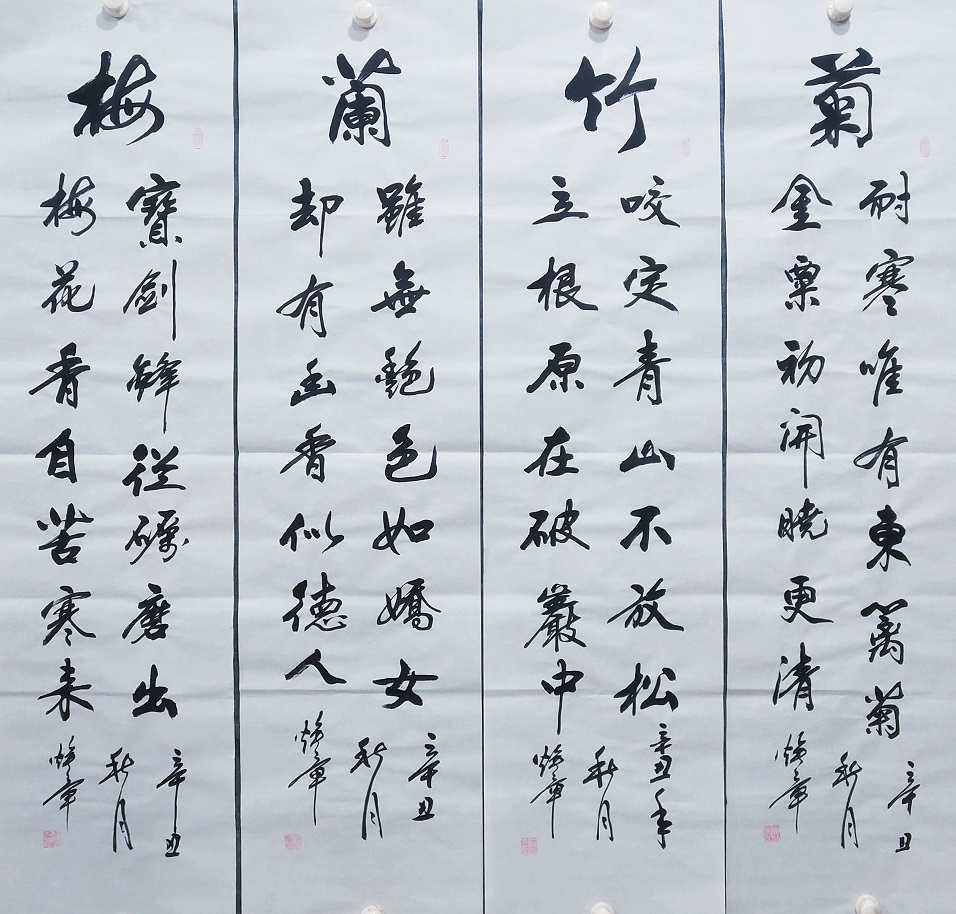 梅
寶劍鋒從礪磨出
梅花香自苦寒来
辛丑
秋月
蘭
雖無艷色如嬌女
却有幽香似德人
辛丑
秋月
竹
咬定青山不放松
立根原在破巖中
辛丑年
秋月
菊
耐寒唯有東籬菊
金粟初開曉更清
辛丑
秋月